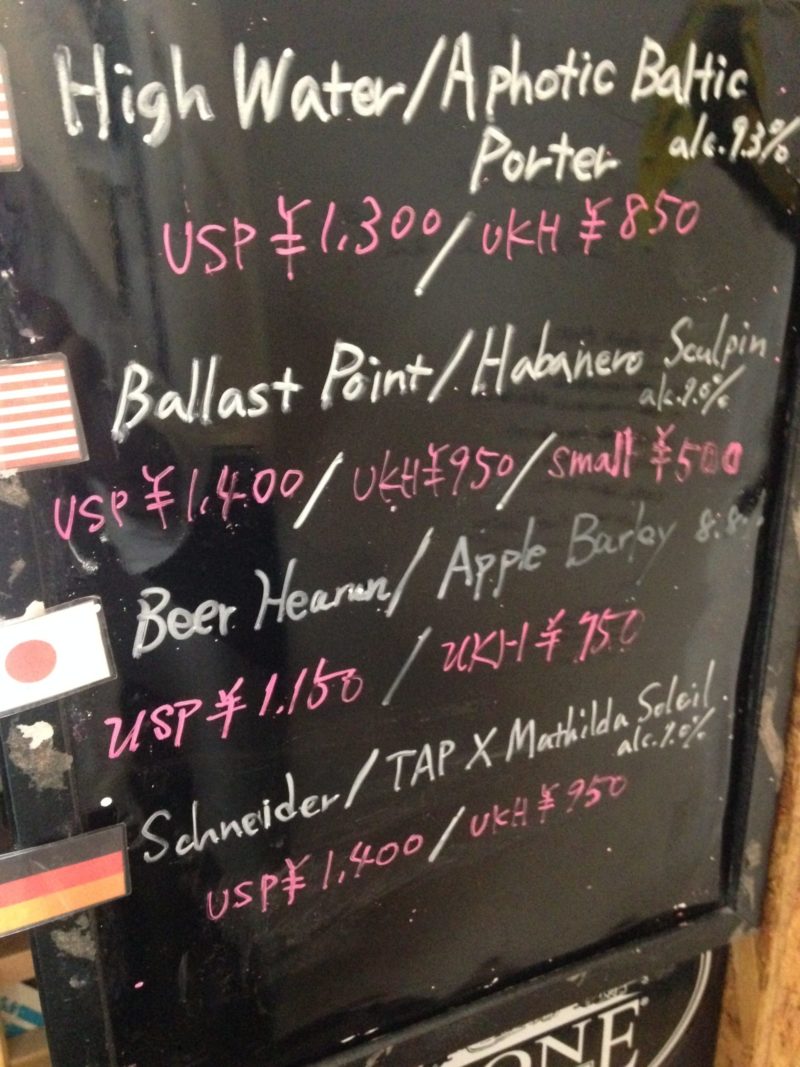 High Water/Aphotic Baltic
Porter alc.9.3%
USP ¥1,300/UKH ¥850
Ballast Point/Habanero Sculpin
alc.9.0%
USP ¥1,400/UKH ¥950/small ¥500
Beer Hearun/Apple Barley 8.8%
USP ¥1,150/UKH ¥750
Schneider/TAP X Mathilda Soleil
alc.9.0%
USP ¥1,400/UKH ¥950
ONE